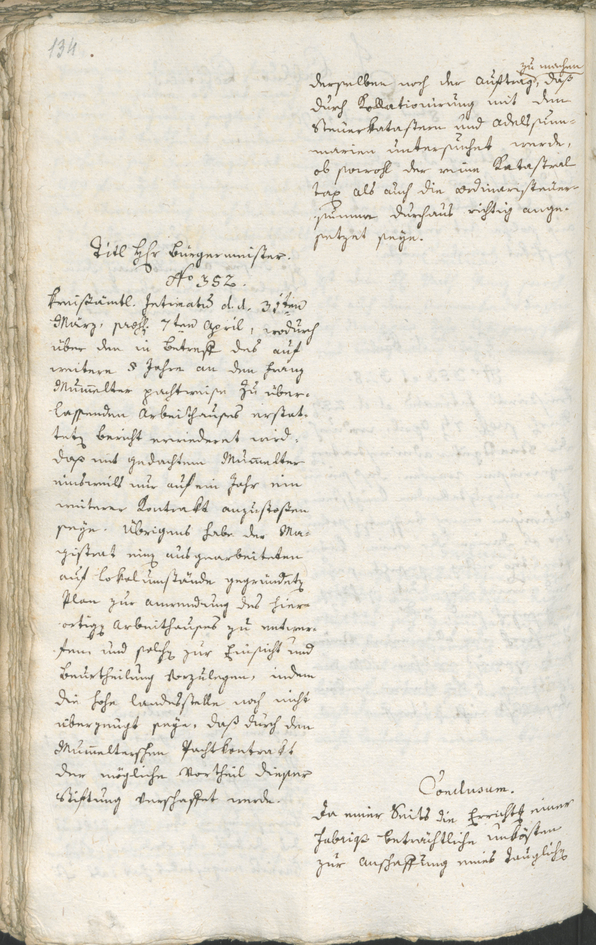 134.
zu machen
derselben noch der Auftrag, daß
durch Kollationirung mit den
Steuerkatastern und Adelssum-
marien untersuchet werde,
ob sowohl der reine Katastral
tax als auch die ordinaristeuer-
summe durchaus richtig ange-
setzet seye.
Titl Hr Bürgermeister.
No 352.
Kreisämtl. Intimatum d.d. 31ten
März, 7ten April, wodurch
über den in Betreff des auf
weitere 5 Jahre an den Franz
Mumelter pachtweise zu über-
lassenden Arbeithauses erstat-
teten Bericht erwiederet wird,
daß mit gedachtem Mumelter
einsweils nur auf ein Jahr ein
weiterer Kontrakt anzustoßen
seye. Übrigens habe der Ma-
gistrat einen ausgearbeiteten
auf Lokalumstände gegründeten
Plan zur Anwendung des hier-
ortigen Arbeithauses zu entwer-
fen und solchen zur Einsicht und
Beurtheilung vorzulegen, indem
die hohe Landesstelle noch nicht
überzeugt seye, daß durch den
Mumelterischen Pachtkontrakt
der mögliche Vortheil dieser
Stiftung verschaffet werde.
Conclusum.
Da einer Seits die Errichtung einer
Fabrique beträchtliche Unkösten
zur Anschaffung eines tauglichen